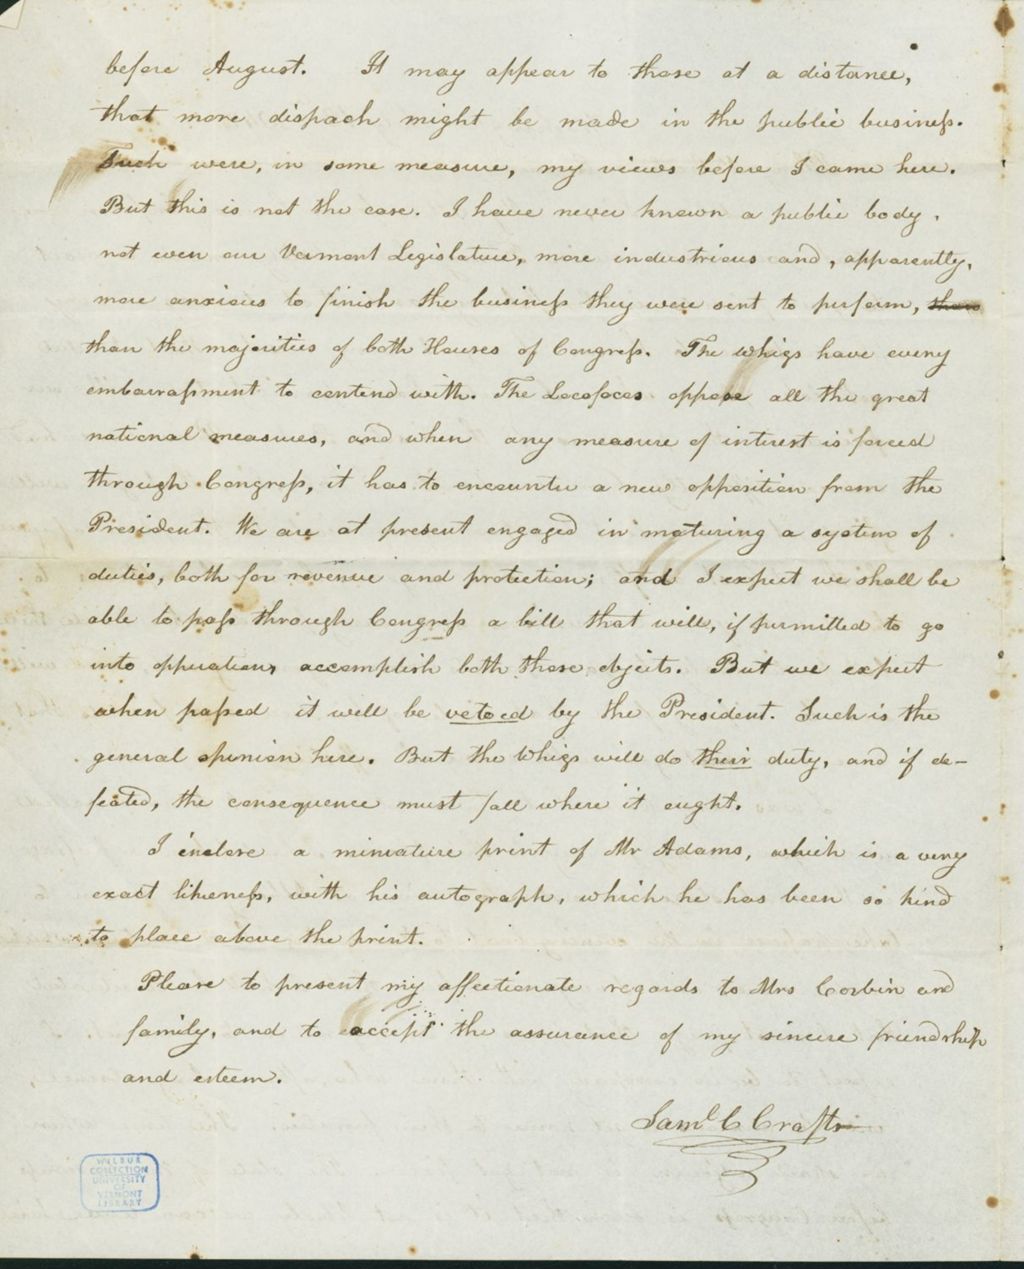 before August. It may appear to those at a distance,
that more dispach might be made in the public business.
Such were, in some measure, my views before I came here.
But this is not the case. I have never known a public body,
not even our Vermont Legislature, more industrious and, apparently,
more anxious to finish the business they were sent to perform, than
than the majorities of both Houses of Congress. The whigs have every
embarrassment to contend with. The Locofocos oppose all the great
national measures, and when any measure of interest is forced
through Congress, it has to encounter a new opposition from the
President. We are at present engaged in maturing a system of
duties, both for revenue and protection; and I expect we shall be
able to pass through Congress a bill that will, if permitted to go
into opperation, accomplish both these objects. But we expect
when passed it will be vetoed by the President. Such is the
general opinion here. But the Whigs will do their duty, and if de-
feated, the consequence must fall where it ought.
I enclose a miniature print of Mr Adams, which is a very
exact likeness, with his autograph, which he has been so kind
to place above the print.
Please to present my affectionate regards to Mrs Corbin and
family, and to accept the assurance of my sincere friendship
and esteem.
Saml C Crafts
WILBUR
COLLECTION
UNIVERSITY
OF
VERMONT
LIBRARY